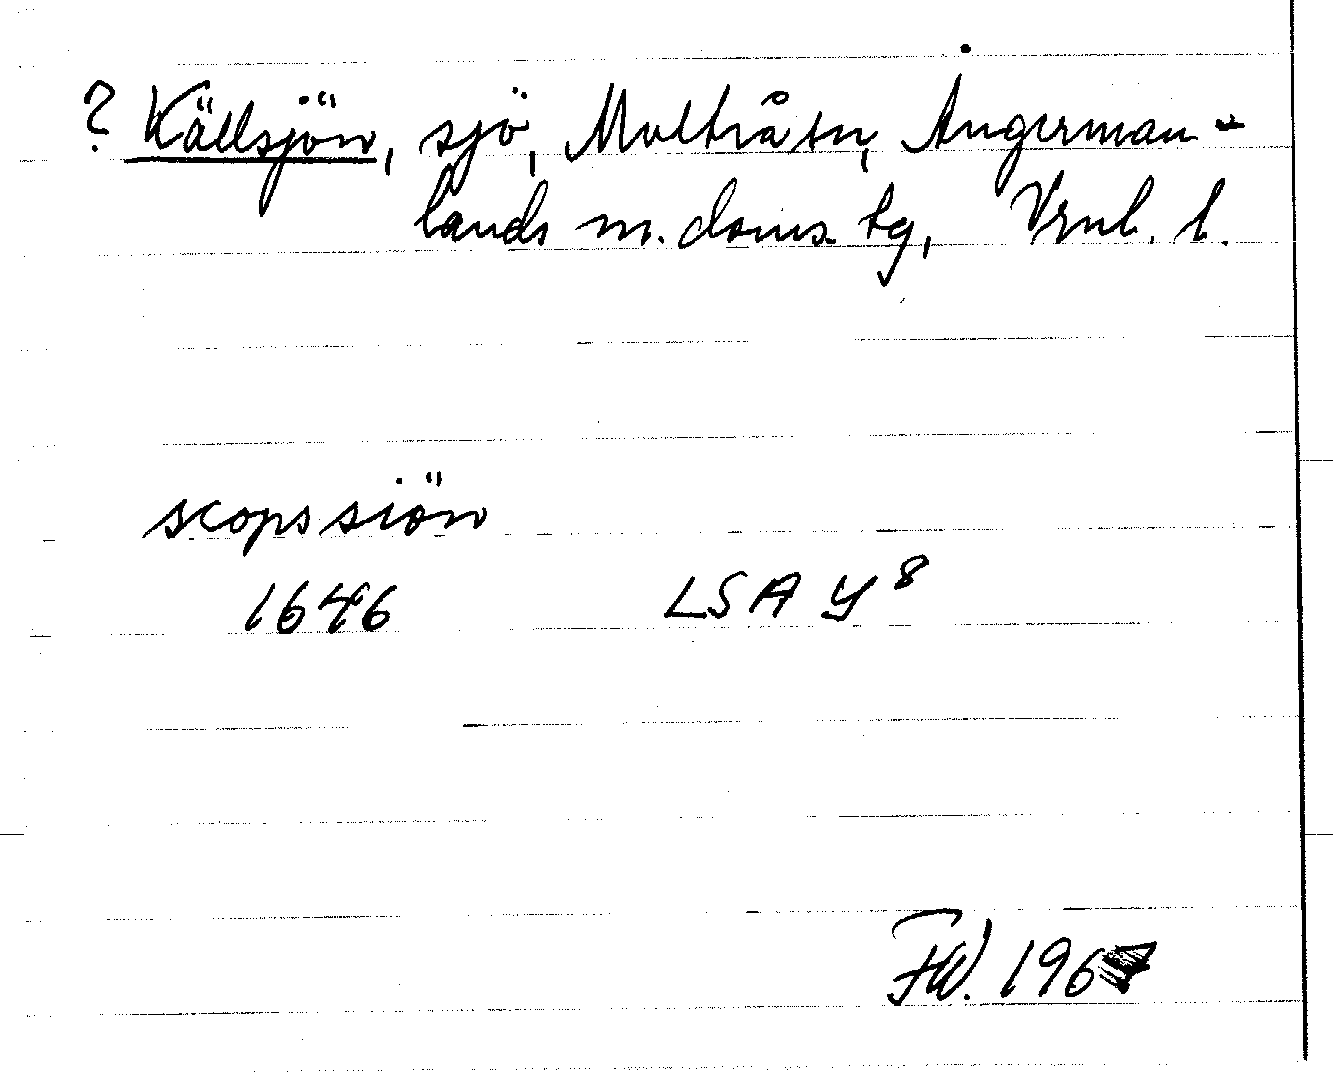 ? Källsjön, sjö, Multrå sn, Ångerman-
lands m. doms. tg, Vrnl. l.
scopssiön
1646 LSA Y 8
FW. 1967